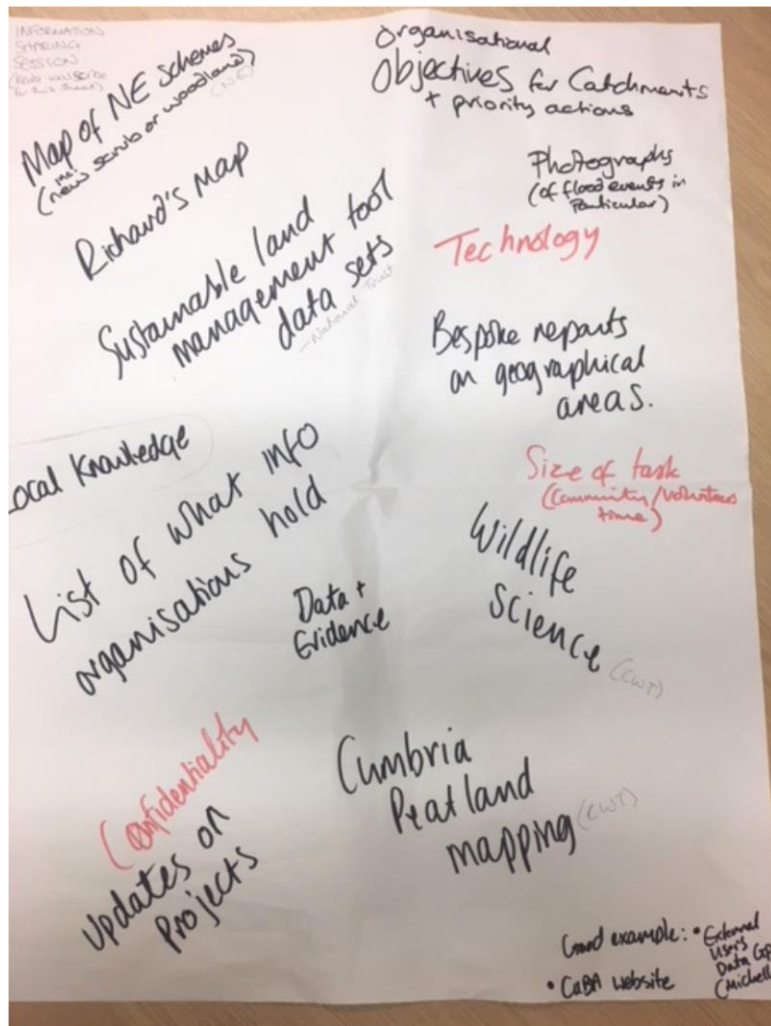 INFORMATION
SHARING
SESSION
Map of NE schemes
(NE)
(inc. new scrub or woodland)
Organisational
Objectives for Catchments
+ priority actions
Richard's Map
Photographs
(of flood events in
Particular)
Technology
Sustainable land
management tool
data sets
- National Trust
Bespoke reports
on geographical
areas.
ocal Knowledge
Size of task
(Community/volunteers
time)
List of what info
organisations hold
Wildlife
Science
(CWT)
Data +
Evidence
Confidentiality
Updates on
Projects
Cumbria
Peatland
mapping
(CWT)
Good example:
• External
Users
Data
(Michell
• CaBA website